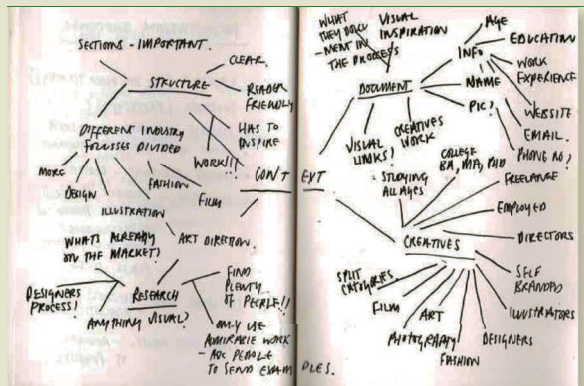 SECTIONS - IMPORTANT.
STRUCTURE
CLEAR
READER
FRIENDLY
HAS TO
INSPIRE
WORK!!!
DIFFERENT INDUSTRY
FOCUSSES DIVIDED
MORE
DESIGN
ILLUSTRATION
FASHION
FILM
ART DIRECTION.
CONTEXT
WHATS ALREADY
ON THE MARKET?
DESIGNERS
PROCESS!
RESEARCH
ANYTHING VISUAL?
FIND
PLENTY
OF PEOPLE!!
ONLY USE
ADMIRABLE WORK
- ASK PEOPLE
TO SEND EXAMPLES.
WHAT
THEY DOCU
-MENT IN
THE PROCESS
VISUAL
INSPIRATION
DOCUMENT
VISUAL
LINKS?
CREATIVES
WORK
INFO
AGE
EDUCATION
WORK
EXPERIENCE
NAME
PIC?
WEBSITE
EMAIL.
PHONE NO?
STUDYING
ALL AGES
COLLEGE
BA, MA, PHD
FREELANCE
EMPLOYED
DIRECTORS
CREATIVES
SELF
BRANDED
ILLUSTRATORS
DESIGNERS
FASHION
ART
PHOTOGRAPHY
FILM
SPLIT
CATEGORIES